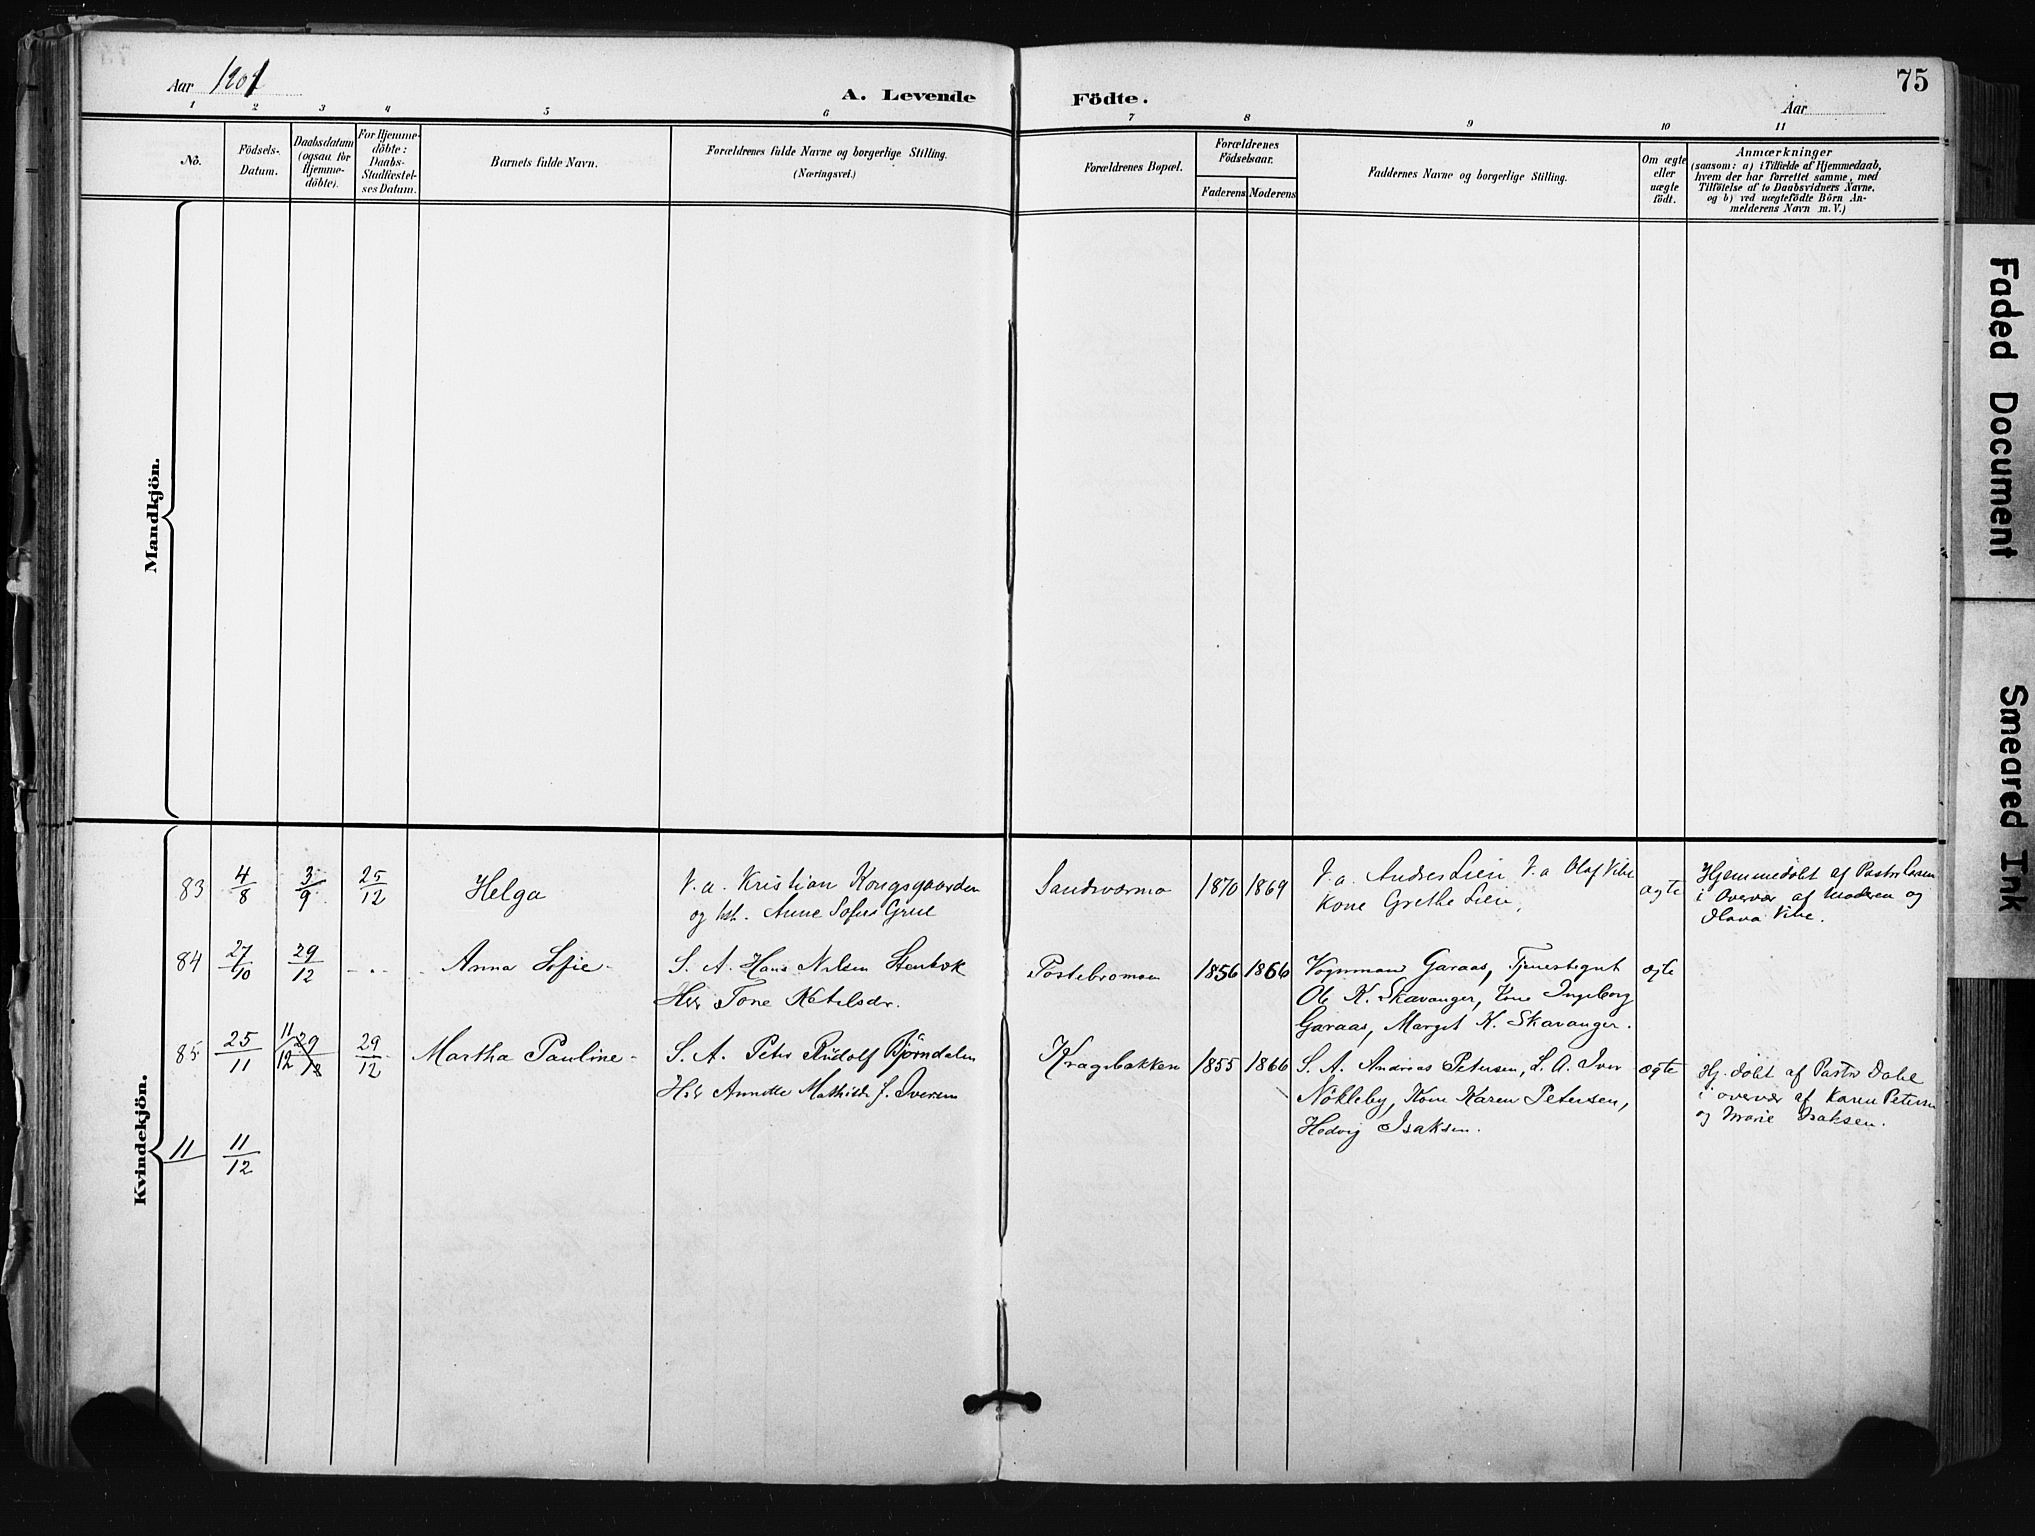 75
Aar 1901
A. Levende Födte.
Aar
1 2 3 4 5 6 7 8 9 10 11
Nô.
Födsels-Datum.
Daabsdatum (ogsaa for Hjemme-döbte).
For Hjemme-döbte: Daabs-Stadfæstel-ses Datum.
Barnets fulde Navn.
Forældrenes fulde Navne og borgerlige Stilling.
(Næringsvei.)
Forældrenes Bopæl.
Forældrenes Födselsaar.
Faderens Moderens
Faddernes Navne og borgerlige Stilling.
Om ægte eller uægte födt.
Anmærkninger
(saasom: a) i Tilfælde af Hjemmedaab,
hvem der har forrettet samme, med
Tilföielse af to Daabsvidners Navne.
og b) ved uægtefödte Börn An-
melderens Navn m. V.)
Mandkjön.
Kvindekjön.
83 4/8 3/9 25/12 Helga
F. a. Kristian Kongsgaarden
og hst. Anne Sofie Grue
Sandsværmo 1870 1869
F. a. Andres Lien F. a Olaf Vibe
Kone Grethe Lien,
ægte
Hjemmedöbt af Pastor Larsen
i Overvær af Moderen og
Vibe.
84 27/10 29/12 - . - Anna Sofie -
S. A. Hans Nilsen Stenbæk
Hst Tone Ketilsdr.
Postebromoen 1856 1856
Vognmand Garaas, Tjenestegut
Ole K. Skavanger, Kone Ingeborg
Garaas, Margit K. Skavanger.
ægte
85 25/11 11/12 29/12 29/12 Martha Pauline -
S. A. Peter Rudolf Björndalen
Hst Annette Mathilde J. Iversen
Kragsbakken 1855 1866
S. A. Andreas Petersen, S. A. Iver
Nökleby, Kone Karen Petersen,
Hedvig Isaksen.
ægte
Hj. döbt af Pastor Dahl
i overvær af Karen Petersen
og Marie Isaksen.
11 11/12
Faded Document
Smeared Ink